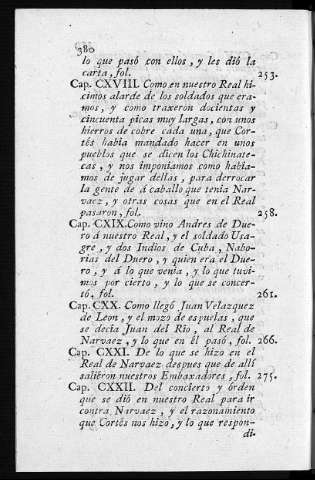 380
lo que pasó con ellos, y les dió la
carta, fol. 253.
Cap. CXVIII. Como en nuestro Real hi-
cimos alarde de los soldados que era-
mos, y como traxeron docientas y
cincuenta picas muy largas, con unos
hierros de cobre cada una, que Cor-
tés habia mandado hacer en unos
pueblos que se dicen los Chichinate-
cas, y nos imponiamos como habia-
mos de jugar dellas, para derrocar
la gente de á caballo que tenia Nar-
vaez, y otras cosas que en el Real
pasaron, fol. 258.
Cap. CXIX. Como vino Andres de Due-
ro á nuestro Real, y el soldado Usa-
gre, y dos Indios de Cuba, Nabo-
rias del Duero, y quien era el Due-
ro, y á lo que venia, y lo que tuvi-
mos por cierto, y lo que se concer-
tó, fol. 261.
Cap. CXX. Como llegó Juan Velazquez
de Leon, y el mozo de espuelas, que
se decia Juan del Rio, al Real de
Narvaez, y lo que en él pasó, fol. 266.
Cap. CXXI. De lo que se hizo en el
Real de Narvaez despues que de allí
saliéron nuestros Embaxadores, fol. 275.
Cap. CXXII. Del concierto y órden
que se dió en nuestro Real para ir
contra Narvaez, y el razonamiento
que Cortés nos hizo, y lo que respon-
di-